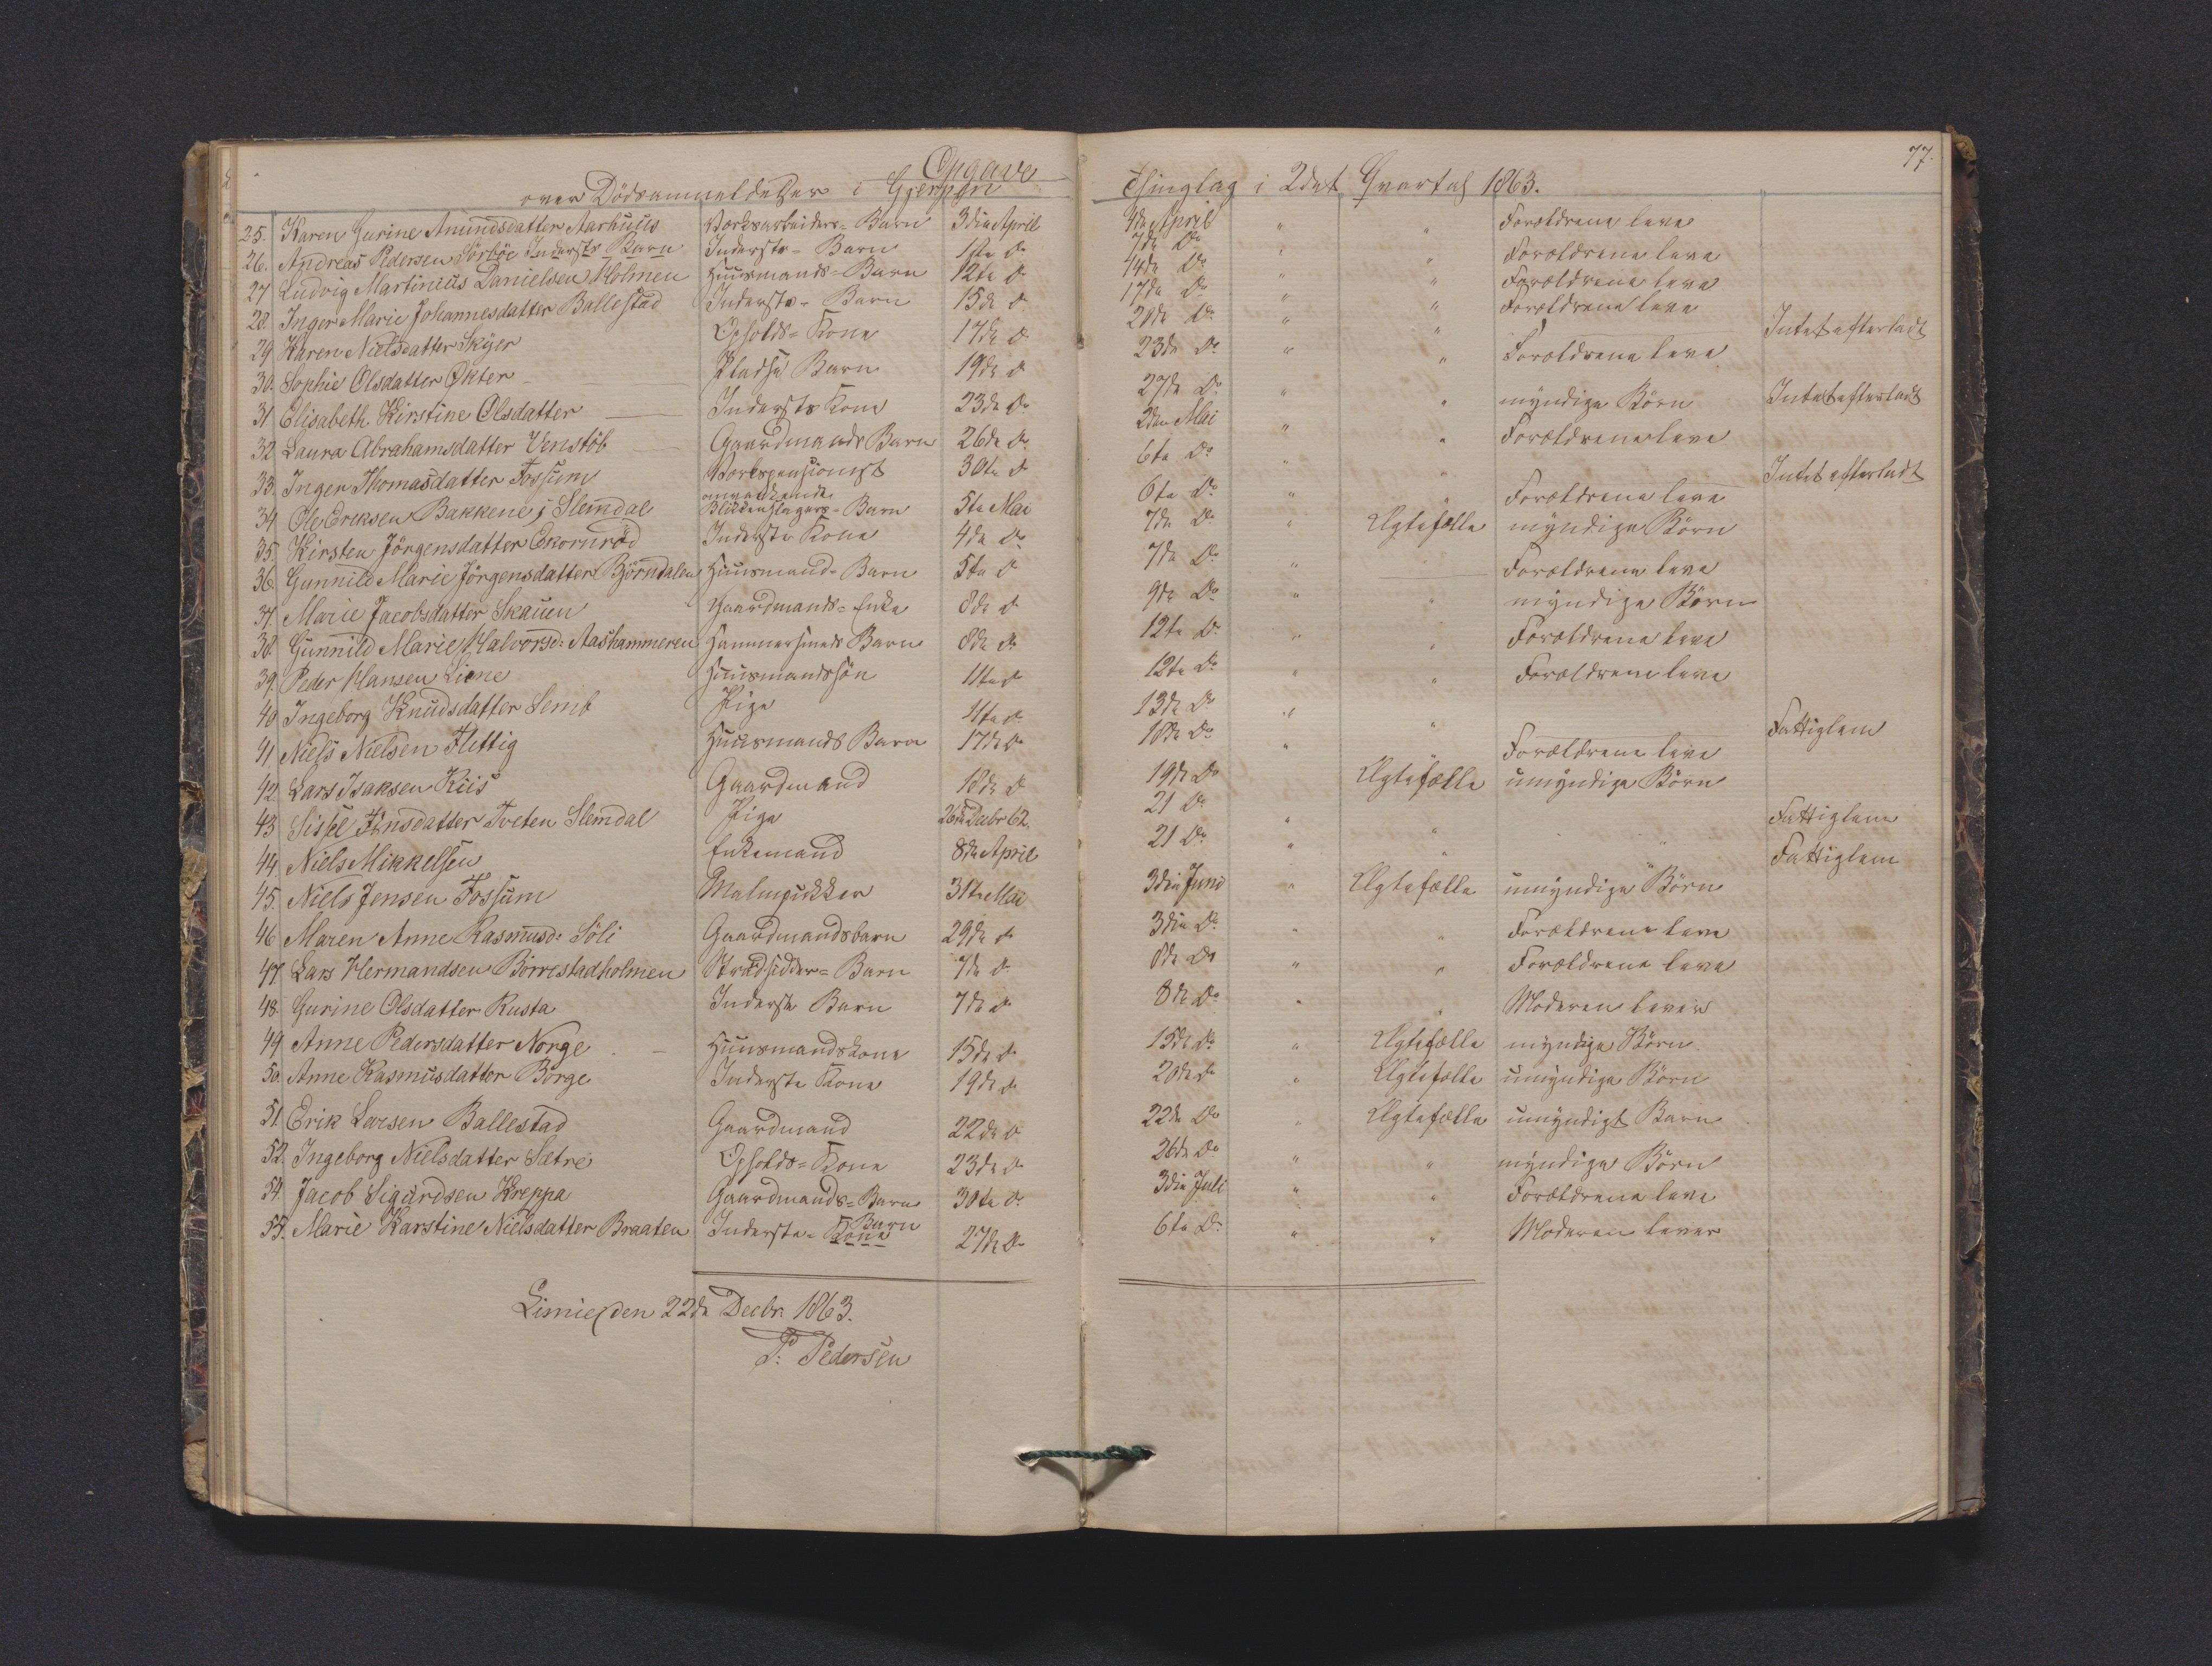 77.
Opgave
over Dödsanmeldelser i Gjerpen Thinglag i 2det Qvartal 1863.
25. Karen Gurine Amundsdatter Aarhuus Værksarbeiders=Barn 3die April 4de April " " Forældrene leve
26. Andreas Pedersen Sörböe Inderste Barn Inderste=Barn 1ste Do 7de Do " " Forældrene leve
27 Ludvig Martinius Danielsen Holmen Huusmands=Barn 12te Do 14de Do " " Forældrene leve
28. Inger Marie Johannesdatter Ballestad Inderste=Barn 15de Do 17de Do " " Forældrene leve
29 Karen Nielsdatter Skyer Opholds=Kone 17de Do 20de Do " " Intet efterladt
30. Sophie Olsdatter Økter Pladse Barn 19de Do 23de Do " " Forældrene leve
31 Elisabeth Kirstine Olsdatter Inderste Kone 23de Do 27de Do " " myndige Börn Intet efterladt
32 Laura Abrahamsdatter Venstöb Gaardmands Barn 26de Do 2den Mai " " Forældrene leve
33. Inger Thomasdatter Fossum Værkspensionist 30te Do 6te Do " " Intet efterladt
34 Ole Eriksen Bakkene i Slemdal omvankende Blikkenslagers=Barn 5te Mai 6te Do " " Forældrene leve
35. Kirsten Jörgensdatter Ekornröd Inderste Kone 4de Do 7de Do " Ægtefælle myndige Börn
36. Gunnild Marie Jörgensdatter Björndalen Huusmand=Barn 5te Do 7de Do " Forældrene leve
37. Marie Jacobsdatter Skauen Gaardmands=Enke 8de Do 9de Do " " myndige Börn
38. Gunnild Marie Halvorsd: Aashammeren Hammersmeds Barn 8de Do 12te Do " " Forældrene leve
39. Peder Hansen Liene Huusmandssön 11te Do 12te Do " " Forældrene leve
40. Ingeborg Knudsdatter Semb Pige 11te Do 13de Do " " Fattiglem
41 Niels Nielsen Flittig Huusmands Barn 17de Do 18de Do " Forældrene leve
42 Lars Isaksen Kiis Gaardmand 18de Do 19de Do Ægtefælle umyndige Börn
43 Sissel Finsdatter Tveten Slemdal Pige 26de Decbr 62. 21 Do " " Fattiglem
44. Niels Mikkelsen Enkemand 8de April 21 Do " " Fattiglem
45. Niels Jensen Fossum Malmpukker 31te Mai 3die Juni " Ægtefælle umyndige Börn
46 Maren Anne Rasmusd: Söli Gaardmandsbarn 29de Do 3die Do " " Forældrene leve
47. Lars Hermandsen Börrestadholmen Strandsidder=Barn 7de Do 8de Do " " Forældrene leve
48. Gurine Olsdatter Rusta Inderste Barn 7de Do 8de Do " " Moderen lever
49 Anne Pedersdatter Norge Huusmandskone 15de Do 15de Do " Ægtefælle myndige Börn
50. Anne Rasmusdatter Borge Inderste Kone 19de Do 20de Do " Ægtefælle umyndige Börn
51. Erik Larsen Ballestad Gaardmand 22de Do 22de Do " Ægtefælle umyndigt Barn
52. Ingeborg Nielsdatter Sætre Opholds=Kone 23de Do 26de Do " " myndige Börn
54. Jacob Sigurdsen Kreppa Gaardmands=Barn 30te Do 3die Juli " " Forældrene leve
55. Marie Karstine Nielsdatter Braaten Inderste=Kone Barn 27de Do 6te Do " " Moderen lever
Limie den 22de Decbr 1863.
P: Pedersen